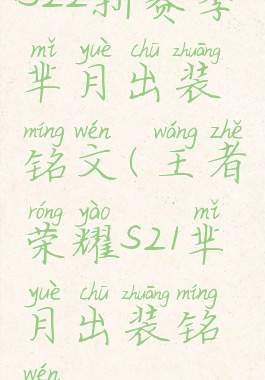 S22新赛季
mǐ yuè chū zhuāng
芈月出装
míng wén wáng zhě
铭文(王者
róng yào mǐ
荣耀S21芈
yuè chū zhuāng míng
月出装铭
wén